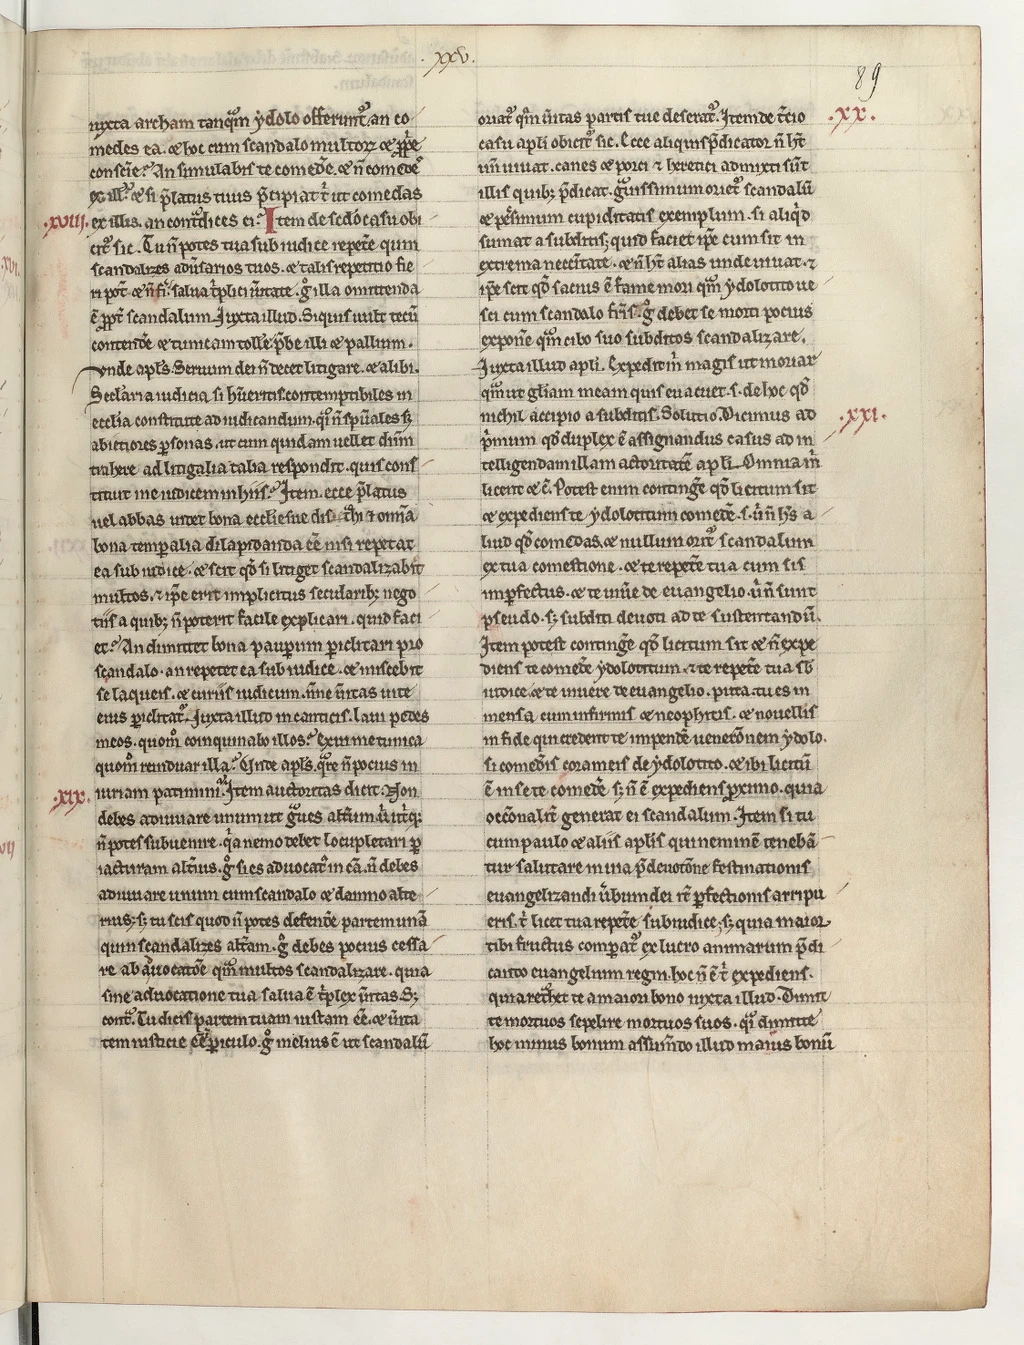 .xxv.
89
iuxta archam tanqͣm ydolo offerunt͛, an co
medes ea. ⁊ hoc cum scandalo multoꝝ ⁊ ꝓp̄e
consc̄ie? An simulabis te comedē͛. ⁊ n̄ comedē͛
ex ill'? ⁊ si p̄latus tuus p̄cipiat t͛ ut comedas
.xviii. ex illis. an cont͛dices ei? Item de sc̄do casu obi
cit͛ sic. Tu n̄ potes tua sub iudice repet͛e quin
scandalizes adu͛sarios tuos. ⁊ talis repetitio fie
ri pot͛ ⁊ n̄ fi͛. salua t͛plici u͛itate. g° illa omittenda
ē ꝓpt͛ scandalum. Iuxta illud. Si quis uult tecū
contendē͛ ⁊ tunicam tolle͛. p̄be illi ⁊ pallium.
Vnde apl's. Seruum dei n̄ decet litigare. ⁊ alibi.
Secl'aria iudicia si hūeritis. contemptibiles in
ecclīa constitute ad iudicandum. qͥ n̄ sp̄uales sꝫ
abiectiores ꝑsonas. ut cum quidam uellet d̄um
trahere ad litigalia talia respondit. quis cons
tituit me iudicem in hiis? Item. ecce p̄latus
uel abbas uidet bona ecclīe sue dis͛thi ⁊ om̄ia
bona temꝑalia dilapidanda eē nisi repetat
ea sub iudice. ⁊ scit qd̄ si litiget scandalizabit
multos. ⁊ ip̄e erit implicitus secularibꝫ nego
tiis a quibꝫ n̄ poterit facile explicari. quid faci
et? An dimittet bona pauꝑum ꝑiclitari pro
scandalo. an repetet ea sub iudice. ⁊ miscebit
se laqueis. ⁊ curiis iudicum. n̄ne u͛itas uite
eius ꝑiclitat͛. Iuxta illud in canticis. Laui pedes
meos. quom̊ coinquinabo illos? Exui me tunica
quom̊ reinduar illa? Vnde apl's. qͣre n̄ pocius in
.xix. iuriam patimini? Item auctoritas dicit. Non
debes adiuuare unum ut gͣues alt͛um. u͛ ut͛qꝫ
n̄ potes subuenire. qͥa nemo debet locupletari ꝑ
iacturam alt͛ius. g° si es aduocat͛ in cā. n̄ debes
adiuuare unum cum scandalo ⁊ damno alte
rius; sꝫ tu scis quod n̄ potes defendē͛ partem unā
quin scandalizes alt͛am. g° debes pocius cessa
re ab aduocatōe qͣm multos scandalizare. quia
sine aduocatione tua salua ē t͛plex u͛itas. Sꝫ
cont͛. Tu dicis partem tuam iustam eē. ⁊ u͛ita
tem iusticie eē ī ꝑiculo. g° melius ē ut scandalū
oriat͛ qͣm u͛itas partis tue deserat͛. Item de t͛cio .xx.
casu apl'i obicit͛ sic. Ecce aliquis p̄dicator n̄ h͛t
un̄ uiuat. canes ⁊ porci ⁊ heretici admixti sūt
illis quibꝫ p̄dicat. gͣuissimum oriet͛ scandalū
⁊ pessimum cupiditatis exemplum. si aliqͥd
sumat a subditis; quid faciet ip̄e cum sit in
extrema necc̄itate. ⁊ n̄ h͛t alias unde uiuat. ⁊
ip̄e scit qd̄ sacius ē fame mori qͣm ydolotito ue
sci cum scandalo fr̄is. g° debet se morti pocius
expone͛ qͣm cibo suo subditos scandalizare.
Iuxta illud apl'i. Expedit m̄ magis ut moriar
qͣm ut gl'iam meam quis euacuet. s. de hoc qd̄
nichil accipio a subditis. Solutio. Dicimus ad .xxi.
p̄mum qd̄ duplex ē assignandus casus ad in
telligendam illam actoritatē apl'i. Omnia m̄
licent ⁊ c̄. Potest enim continge͛ qd̄ licitum sit
⁊ expediens te ydolotitum comede͛. s. u͛ n̄ h͛s a
liud qd̄ comedas. ⁊ nullum orit͛ scandalum
ex tua comestione. ⁊ te repete͛ tua cum sis
imꝑfectus. ⁊ te uiue͛ de euangelio. u͛ n̄ sunt
pseudo. sꝫ subditi deuoti ad te sustentandū.
Item potest continge͛ qd̄ licitum sit ⁊ n̄ expe
diens te comede͛ ydolotitum. ⁊ te repete͛ tua sb̄
iudice ⁊ te uiuere de euangelio. puta. tu es in
mensa cum infirmis ⁊ neophitis. ⁊ nouellis
in fide qui credent te impende͛ uenerōnem ydolo.
si comedis coram eis de ydolotito. ⁊ ibi licitū
ē in se te comede͛. sꝫ n̄ ē expediens ꝓximo. quia
occōnalit͛ generat ei scandalum. Item si tu
cum paulo ⁊ aliis apl'is qui nemine tenebā
tur salutare in uia p̄ deuotōne festinationis
euangelizandi u͛bum dei it͛ ꝑfectionis arripu
eris. t͛ licet tua repete͛ sub iudice; sꝫ quia maior
tibi fructus comparat͛ ex lucro animarum p̄di
cando euangelium regni. hoc n̄ ē t͛ expediens.
quia ret͛het te a maiori bono iuxta illud. Dimit
te mortuos sepelire mortuos suos. qͥ dimitte
hoc minus bonum assum̄do illud maius bonū